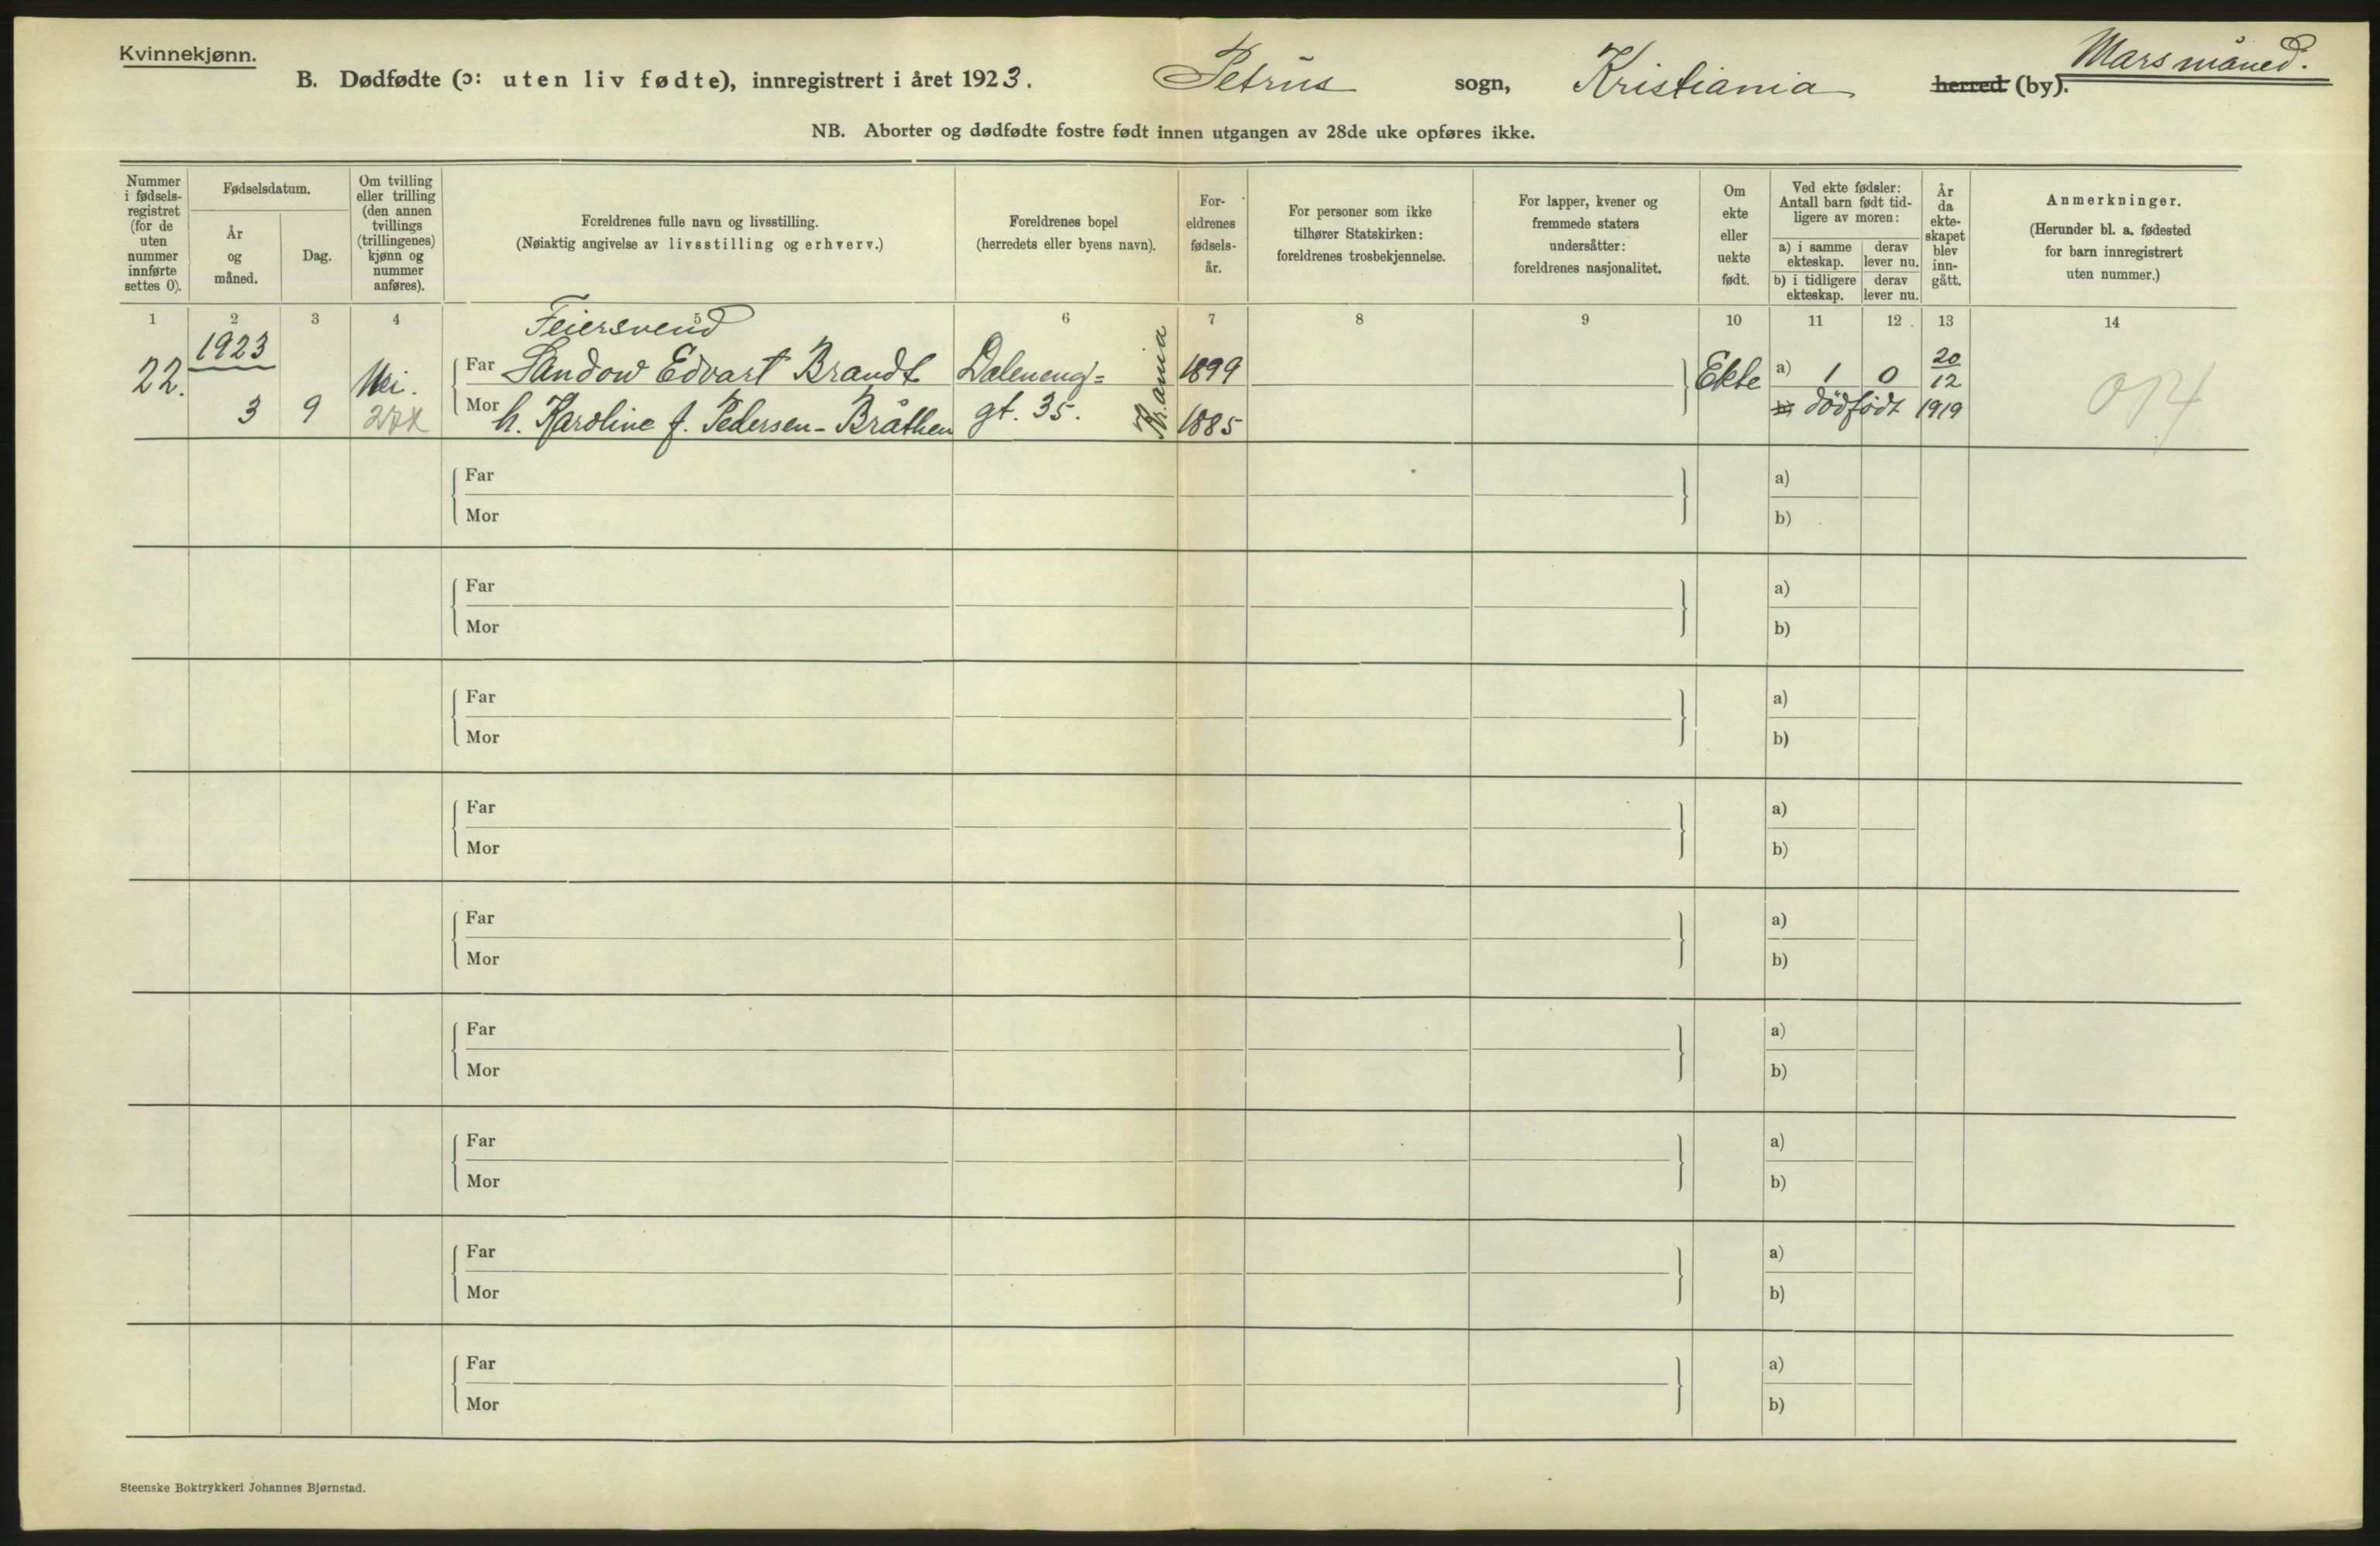 Kvinnekjønn.
Mars måned.
B. Dødfødte (ɔ: uten liv fødte), innregistrert i året 1923. Petrus sogn, Kristiania herred (by).
NB. Aborter og dødfødte fostre født innen utgangen av 28de uke opføres ikke.
Nummer i fødsels-registret (for de uten nummer innførte settes 0).
Fødselsdatum.
År og måned.
Dag.
Om tvilling eller trilling (den annen tvillings (trillingenes) kjønn og nummer anføres).
Foreldrenes fulle navn og livsstilling.
(Nøiaktig angivelse av livsstilling og erhverv.)
Foreldrenes bopel
(herredets eller byens navn).
For-eldrenes fødsels-år.
For personer som ikke tilhører Statskirken: foreldrenes trosbekjennelse.
For lapper, kvener og fremmede staters undersåtter: foreldrenes nasjonalitet.
Om ekte eller uekte født.
Ved ekte fødsler: Antall barn født tid-ligere av moren:
a) i samme ekteskap.
derav lever nu.
b) i tidligere ekteskap.
derav lever nu.
År da ekte-skapet blev inn-gått.
Anmerkninger.
(Herunder bl. a. fødested for barn innregistrert uten nummer.)
1 2 3 4 5 6 7 8 9 10 11 12 13 14
1923
Feiersvend
22. Nei. Far Sandow Edvart Brandt Daleneng= Kr.ania 1899 Ekte a) 1 0 20/12
3 9 Mor h. Karoline f. Pedersen-Bråthen gt. 35. 1885 b) dødfødt 1919
Far a)
Mor b)
Far a)
Mor b)
Far a)
Mor b)
Far a)
Mor b)
Far a)
Mor b)
Far a)
Mor b)
Far a)
Mor b)
Far a)
Mor b)
Far a)
Mor b)
Steenske Boktrykkeri Johannes Bjørnstad.